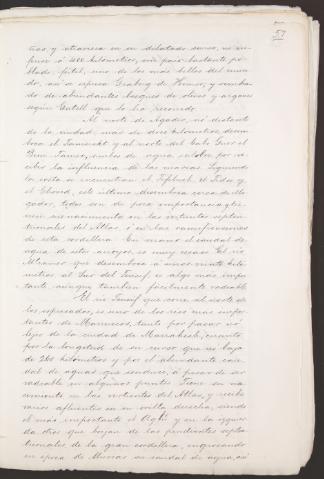 57
tivas, y atraviesa en su dilatado curso, no in-
ferior á 200 kilometros, un pais bastante po-
blado, fértil, uno de los más bellos del mun-
do, así expresa Graberg de Hemso, y rodea-
do de abundantes bosques de olivos y arganes
según Cutell que lo ha recorrido.
Al norte de Agadir, no distante
de la ciudad, mas de doce kilometros, desem-
boca el Tamerakt y al norte del Cabo Guer el
Beni Tamer, ambos de agua salobre por re-
cibir la influencia de las mareas. Siguiendo
la costa se encuentran el Tefthul, el Tidsi y
el Ghored, este último desemboca cerca de Mo-
gador, todos son de poca importancia y tie-
nen su nacimiento en las vertientes septen-
trionales del Atlas, ó en las ramificaciones
de esta cordillera. En verano el caudal de
agua de estos arroyos, es muy escaso. El rio
que desemboca á unos veinte kilo-
metros al Sur del Tensif, es algo más impor-
tante aunque tambien facilmente vadeable.
El rio Tensif que corre al norte de
los expresados, es uno de los rios mas impor-
tantes de Marruecos, tanto por pasar no
lejos de la ciudad de Marrakesh, cuanto
por la longitud de su curso que no baja
de 260 kilometros y por el abundante cau-
dal de aguas que conduce, á pesar de ser
vadeable en algunos puntos. Tiene su na-
cimiento en las vertientes del Atlas, y recibe
varios afluentes en su orilla derecha, siendo
el mas importante el y en la izquier-
da otros que bajan de las pendientes septen-
trionales de la gran cordillera, engrosando
en época de lluvias su caudal de agua, así